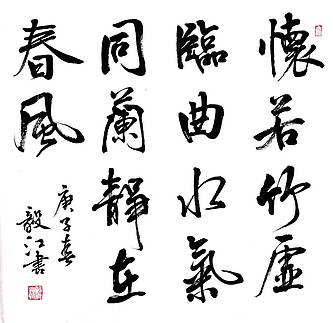 懷若竹虛
臨曲水氣
同蘭靜在
春風
庚子春
毅江書